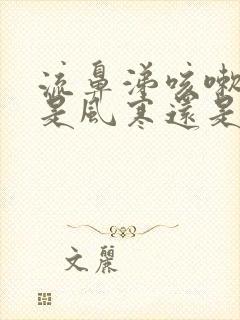 流鼻涕咳嗽
是風寒還是
文麗